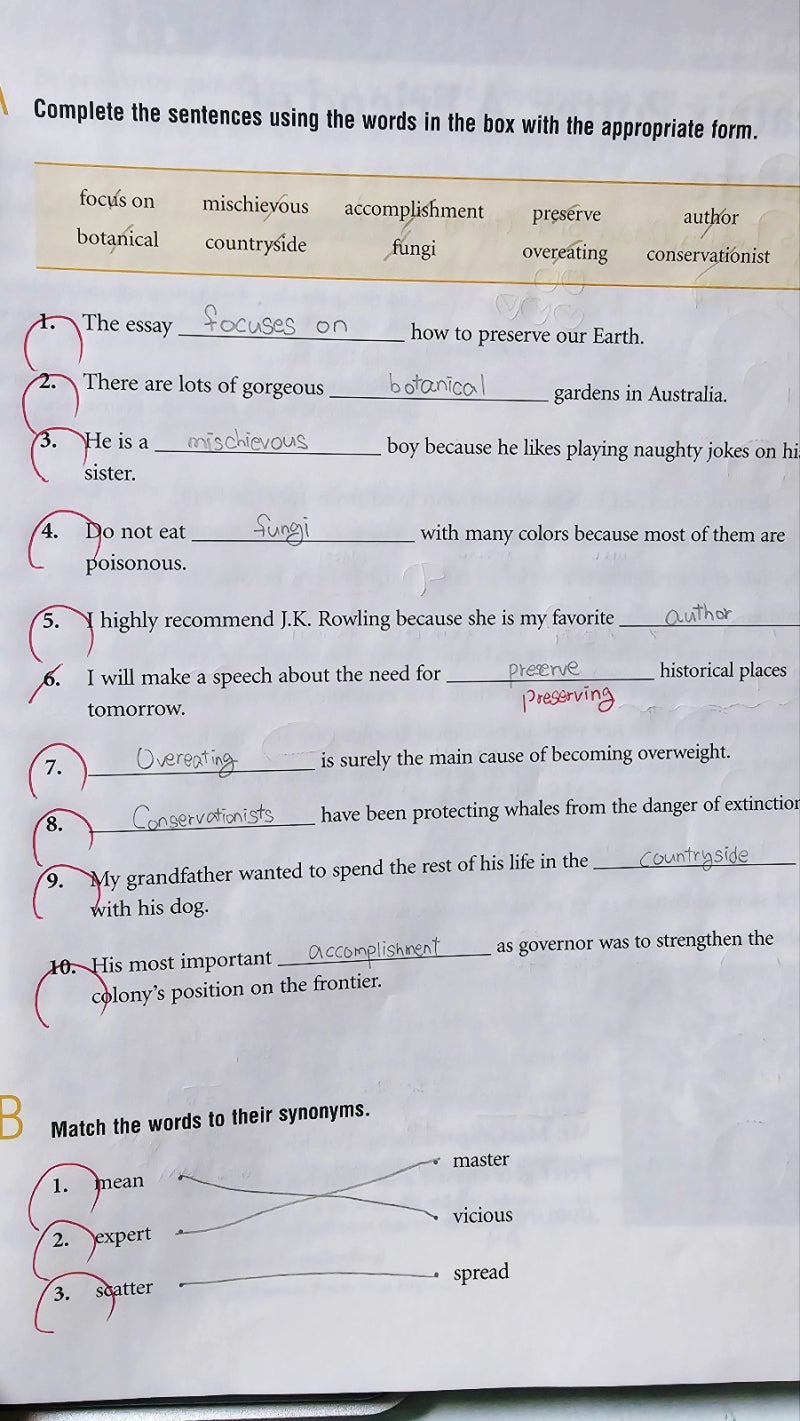 Complete the sentences using the words in the box with the appropriate form.
focus on mischievous accomplishment preserve author
botanical countryside fungi overeating conservationist
1. The essay focuses on how to preserve our Earth.
2. There are lots of gorgeous botanical gardens in Australia.
3. He is a mischievous boy because he likes playing naughty jokes on his
sister.
4. Do not eat fungi with many colors because most of them are
poisonous.
5. I highly recommend J.K. Rowling because she is my favorite author
6. I will make a speech about the need for preserve historical places
preserving
tomorrow.
7. Overeating is surely the main cause of becoming overweight.
8. Conservationists have been protecting whales from the danger of extinction
9. My grandfather wanted to spend the rest of his life in the countryside
with his dog.
10. His most important accomplishment as governor was to strengthen the
colony's position on the frontier.
B Match the words to their synonyms.
1. mean master
2. expert vicious
3. scatter spread